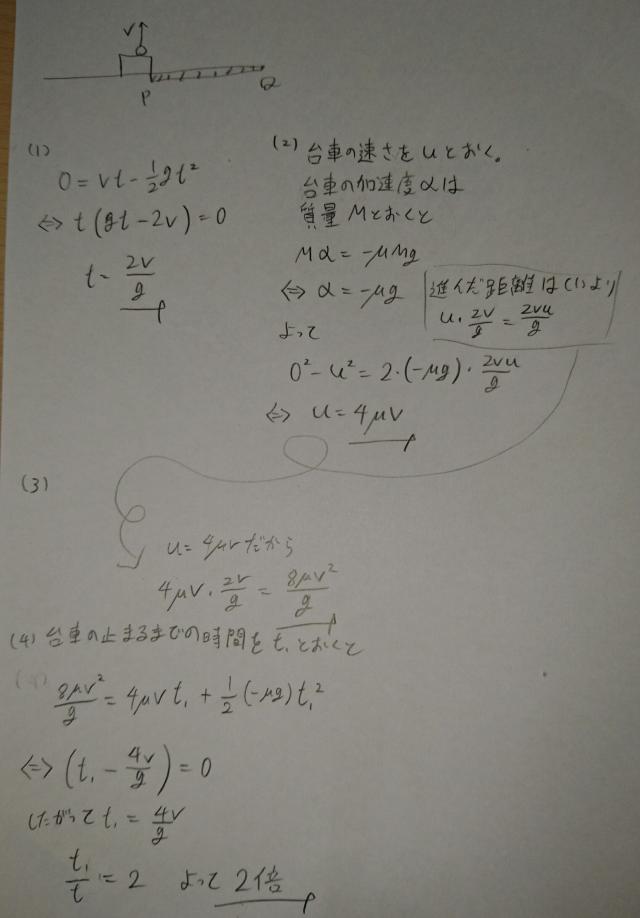 V
P
Q
(1)
0 = vt - 1/2 gt²
⇔ t(gt - 2v) = 0
t = 2v/g
(2) 台車の速さをuとおく。
台車の加速度αは
質量Mとおくと
Mα = -μMg
⇔ α = -μg
進んだ距離は(1)より
u・2v/g = 2vu/g
よって
0² - u² = 2・(-μg)・2vu/g
⇔ u = 4μv
(3)
u = 4μvだから
4μv・2v/g = 8μv²/g
(4) 台車の止まるまでの時間をt₁とおくと
8μv²/g = 4μv t₁ + 1/2(-μg)t₁²
⇔ (t₁ - 4v/g) = 0
したがって t₁ = 4v/g
t₁/t = 2 よって 2倍